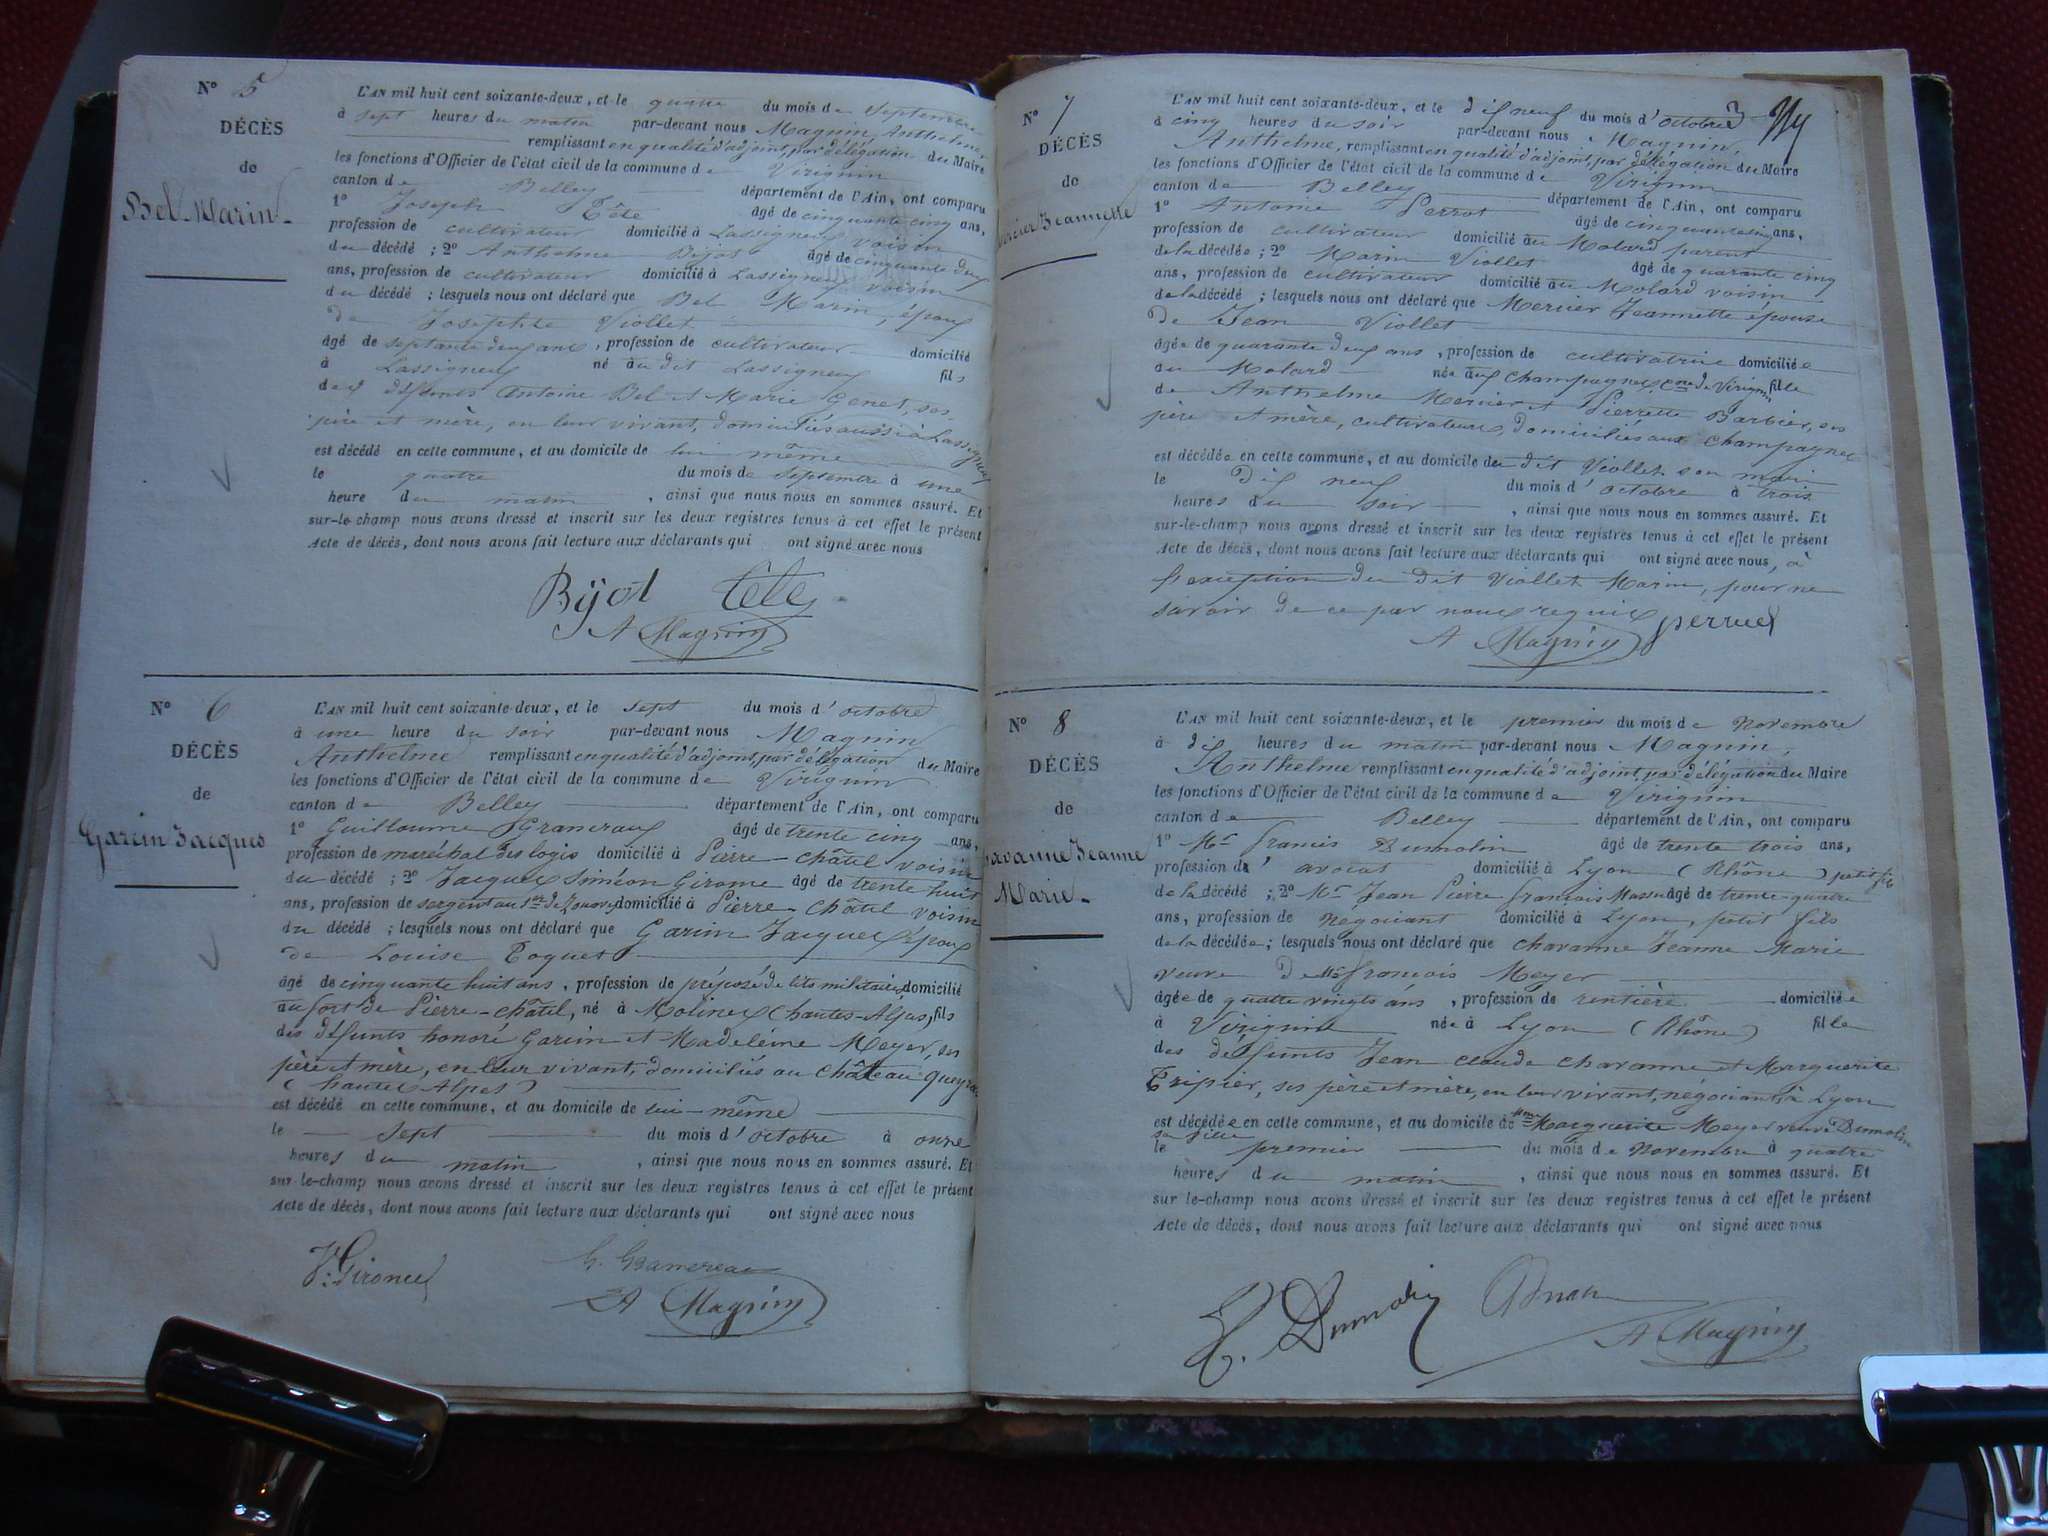 N° 5
DÉCÈS
de
Bel Marin
L'AN mil huit cent soixante-deux, et le quatre du mois de Septembre
à sept heures du matin par-devant nous Magnin, Anthelme,
remplissant en qualité d'adjoint, par délégation du Maire
les fonctions d'Officier de l'état civil de la commune de Virignin
canton de Belley département de l'Ain, ont comparu
1° Joseph Tête âgé de cinquante cinq ans,
profession de cultivateur domicilié à Lassigneu voisin
du décédé ; 2° Anthelme Bijot âgé de cinquante deux
ans, profession de cultivateur domicilié à Lassigneu voisin
du décédé ; lesquels nous ont déclaré que Bel Marin, époux
de Josephte Viollet
âgé de septante deux ans, profession de cultivateur domicilié
à Lassigneu né au dit Lassigneu fils
des défunts Antoine Bel et Marie Genet, ses
père et mère, en leur vivant, domiciliés aussi à Lassigneu
est décédé en cette commune, et au domicile de lui même
le quatre du mois de Septembre à une
heure du matin, ainsi que nous nous en sommes assuré. Et
sur-le-champ nous avons dressé et inscrit sur les deux registres tenus à cet effet le présent
Acte de décès, dont nous avons fait lecture aux déclarants qui ont signé avec nous
Bijot Tête
A Magnin
N° 6
DÉCÈS
de
Garcin Jacques
L'AN mil huit cent soixante-deux, et le sept du mois d'octobre
à une heure du soir par-devant nous Magnin
Anthelme remplissant en qualité d'adjoint, par délégation du Maire
les fonctions d'Officier de l'état civil de la commune de Virignin
canton de Belley département de l'Ain, ont comparu
1° Guillaume âgé de trente cinq ans,
profession de maréchal des logis domicilié à Pierre-châtel voisin
du décédé ; 2° Jacques Siméon Girome âgé de trente huit
ans, profession de sergent au 1er de Zouaves domicilié à Pierre-châtel voisin
du décédé ; lesquels nous ont déclaré que Garcin Jacques époux
de Louise Toquet
âgé de cinquante huit ans, profession de préposé de lits militaires domicilié
au fort de Pierre-châtel, né à Molines (hautes-Alpes), fils
des défunts honoré Garcin et Madeleine Meyer, ses
père et mère, en leur vivant, domiciliés au Château queyras
(hautes Alpes)
est décédé en cette commune, et au domicile de lui-même
le sept du mois d'octobre à onze
heures du matin, ainsi que nous nous en sommes assuré. Et
sur le-champ nous avons dressé et inscrit sur les deux registres tenus à cet effet le présent
Acte de décès, dont nous avons fait lecture aux déclarants qui ont signé avec nous
A Magnin
N° 7
DÉCÈS
de
Mercier Jeannette
L'AN mil huit cent soixante-deux, et le dix neuf du mois d'octobre
à cinq heures du soir par-devant nous Magnin,
Anthelme, remplissant en qualité d'adjoint, par délégation du Maire
les fonctions d'Officier de l'état civil de la commune de Virignin
canton de Belley département de l'Ain, ont comparu
1° Antoine Perrot âgé de cinquante cinq ans,
profession de cultivateur domicilié au Molard parent
de la décédée ; 2° Marin Viollet âgé de quarante cinq
ans, profession de cultivateur domicilié au Molard voisin
de la décédé ; lesquels nous ont déclaré que Mercier Jeannette épouse
de Jean Viollet
âgée de quarante deux ans, profession de cultivatrice domiciliée
au Molard née aux champagnes Cne de Virignin, fille
de Anthelme Mercier et Pierrette Barbier, ses
père et mère, cultivateurs, domiciliés aux champagnes
est décédée en cette commune, et au domicile du dit Viollet son mari
le dix neuf du mois d'octobre à trois
heures du soir, ainsi que nous nous en sommes assuré. Et
sur-le-champ nous avons dressé et inscrit sur les deux registres tenus à cet effet le présent
Acte de décès, dont nous avons fait lecture aux déclarants qui ont signé avec nous, à
l'exception du dit Viollet Marin, pour ne
savoir de ce par nous requis
A Magnin
N° 8
DÉCÈS
de
Chavanne Jeanne
Marie
L'AN mil huit cent soixante-deux, et le premier du mois de Novembre
à dix heures du matin par-devant nous Magnin,
Anthelme remplissant en qualité d'adjoint, par délégation du Maire
les fonctions d'Officier de l'état civil de la commune de Virignin
canton de Belley département de l'Ain, ont comparu
1° Mr Francis Dumolin âgé de trente trois ans,
profession d'avocat domicilié à Lyon (Rhône) petit fils
de la décédé ; 2° Mr Jean Pierre François âgé de trente-quatre
ans, profession de Négociant domicilié à Lyon, petit fils
de la décédée ; lesquels nous ont déclaré que Chavanne Jeanne Marie
veuve de Mr François Meyer
âgée de quatre vingts ans, profession de rentière domiciliée
à Virignin née à Lyon (Rhône) fille
des défunts Jean claude chavanne et Marguerite
Tripier, ses père et mère, en leur vivant, négociants, à Lyon
est décédée en cette commune, et au domicile de Mme Marguerite Meyer veuve Dumolin
sa fille
le premier du mois de Novembre à quatre
heures du matin, ainsi que nous nous en sommes assuré. Et
sur le-champ nous avons dressé et inscrit sur les deux registres tenus à cet effet le présent
Acte de décès, dont nous avons fait lecture aux déclarants qui ont signé avec nous
Dumolin
A Magnin